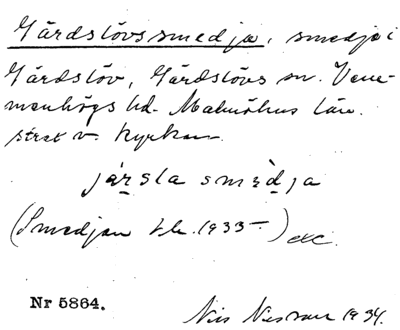 Gärdslövssmedja, smedja i
Gärdslöv, Gärdslövs sn. Vem-
menhögs hd. Malmöhus län.
strax v. kyrkan.
järsla smedja
(Smedjan 1933 ) etc.
Nr 5864.
Nils Nilsson 1934.